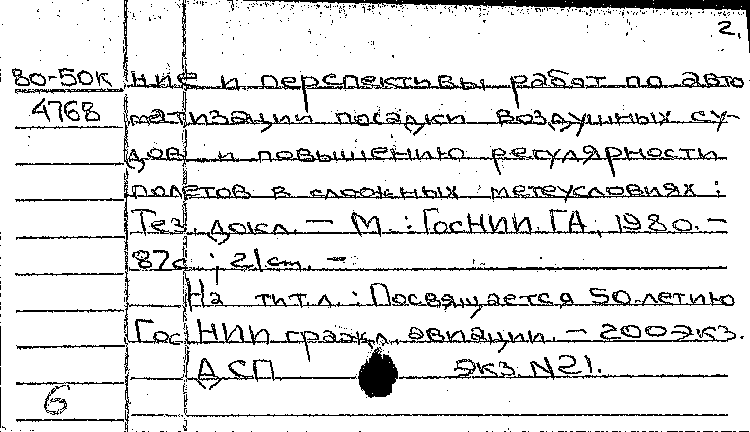 2.
80-50к ние и перспективы работ по авто
4768 матизации посадки воздушных су-
дов и повышению регулярности
полетов в сложных метеусловиях:
Тез. докл. — М.: ГосНИИ ГА, 1980. —
87с.; 21см. —
На тит.л.: Посвящается 50-летию
ГосНИИ гражд. авиации. — 200 экз.
ДСП Экз. N21.
6